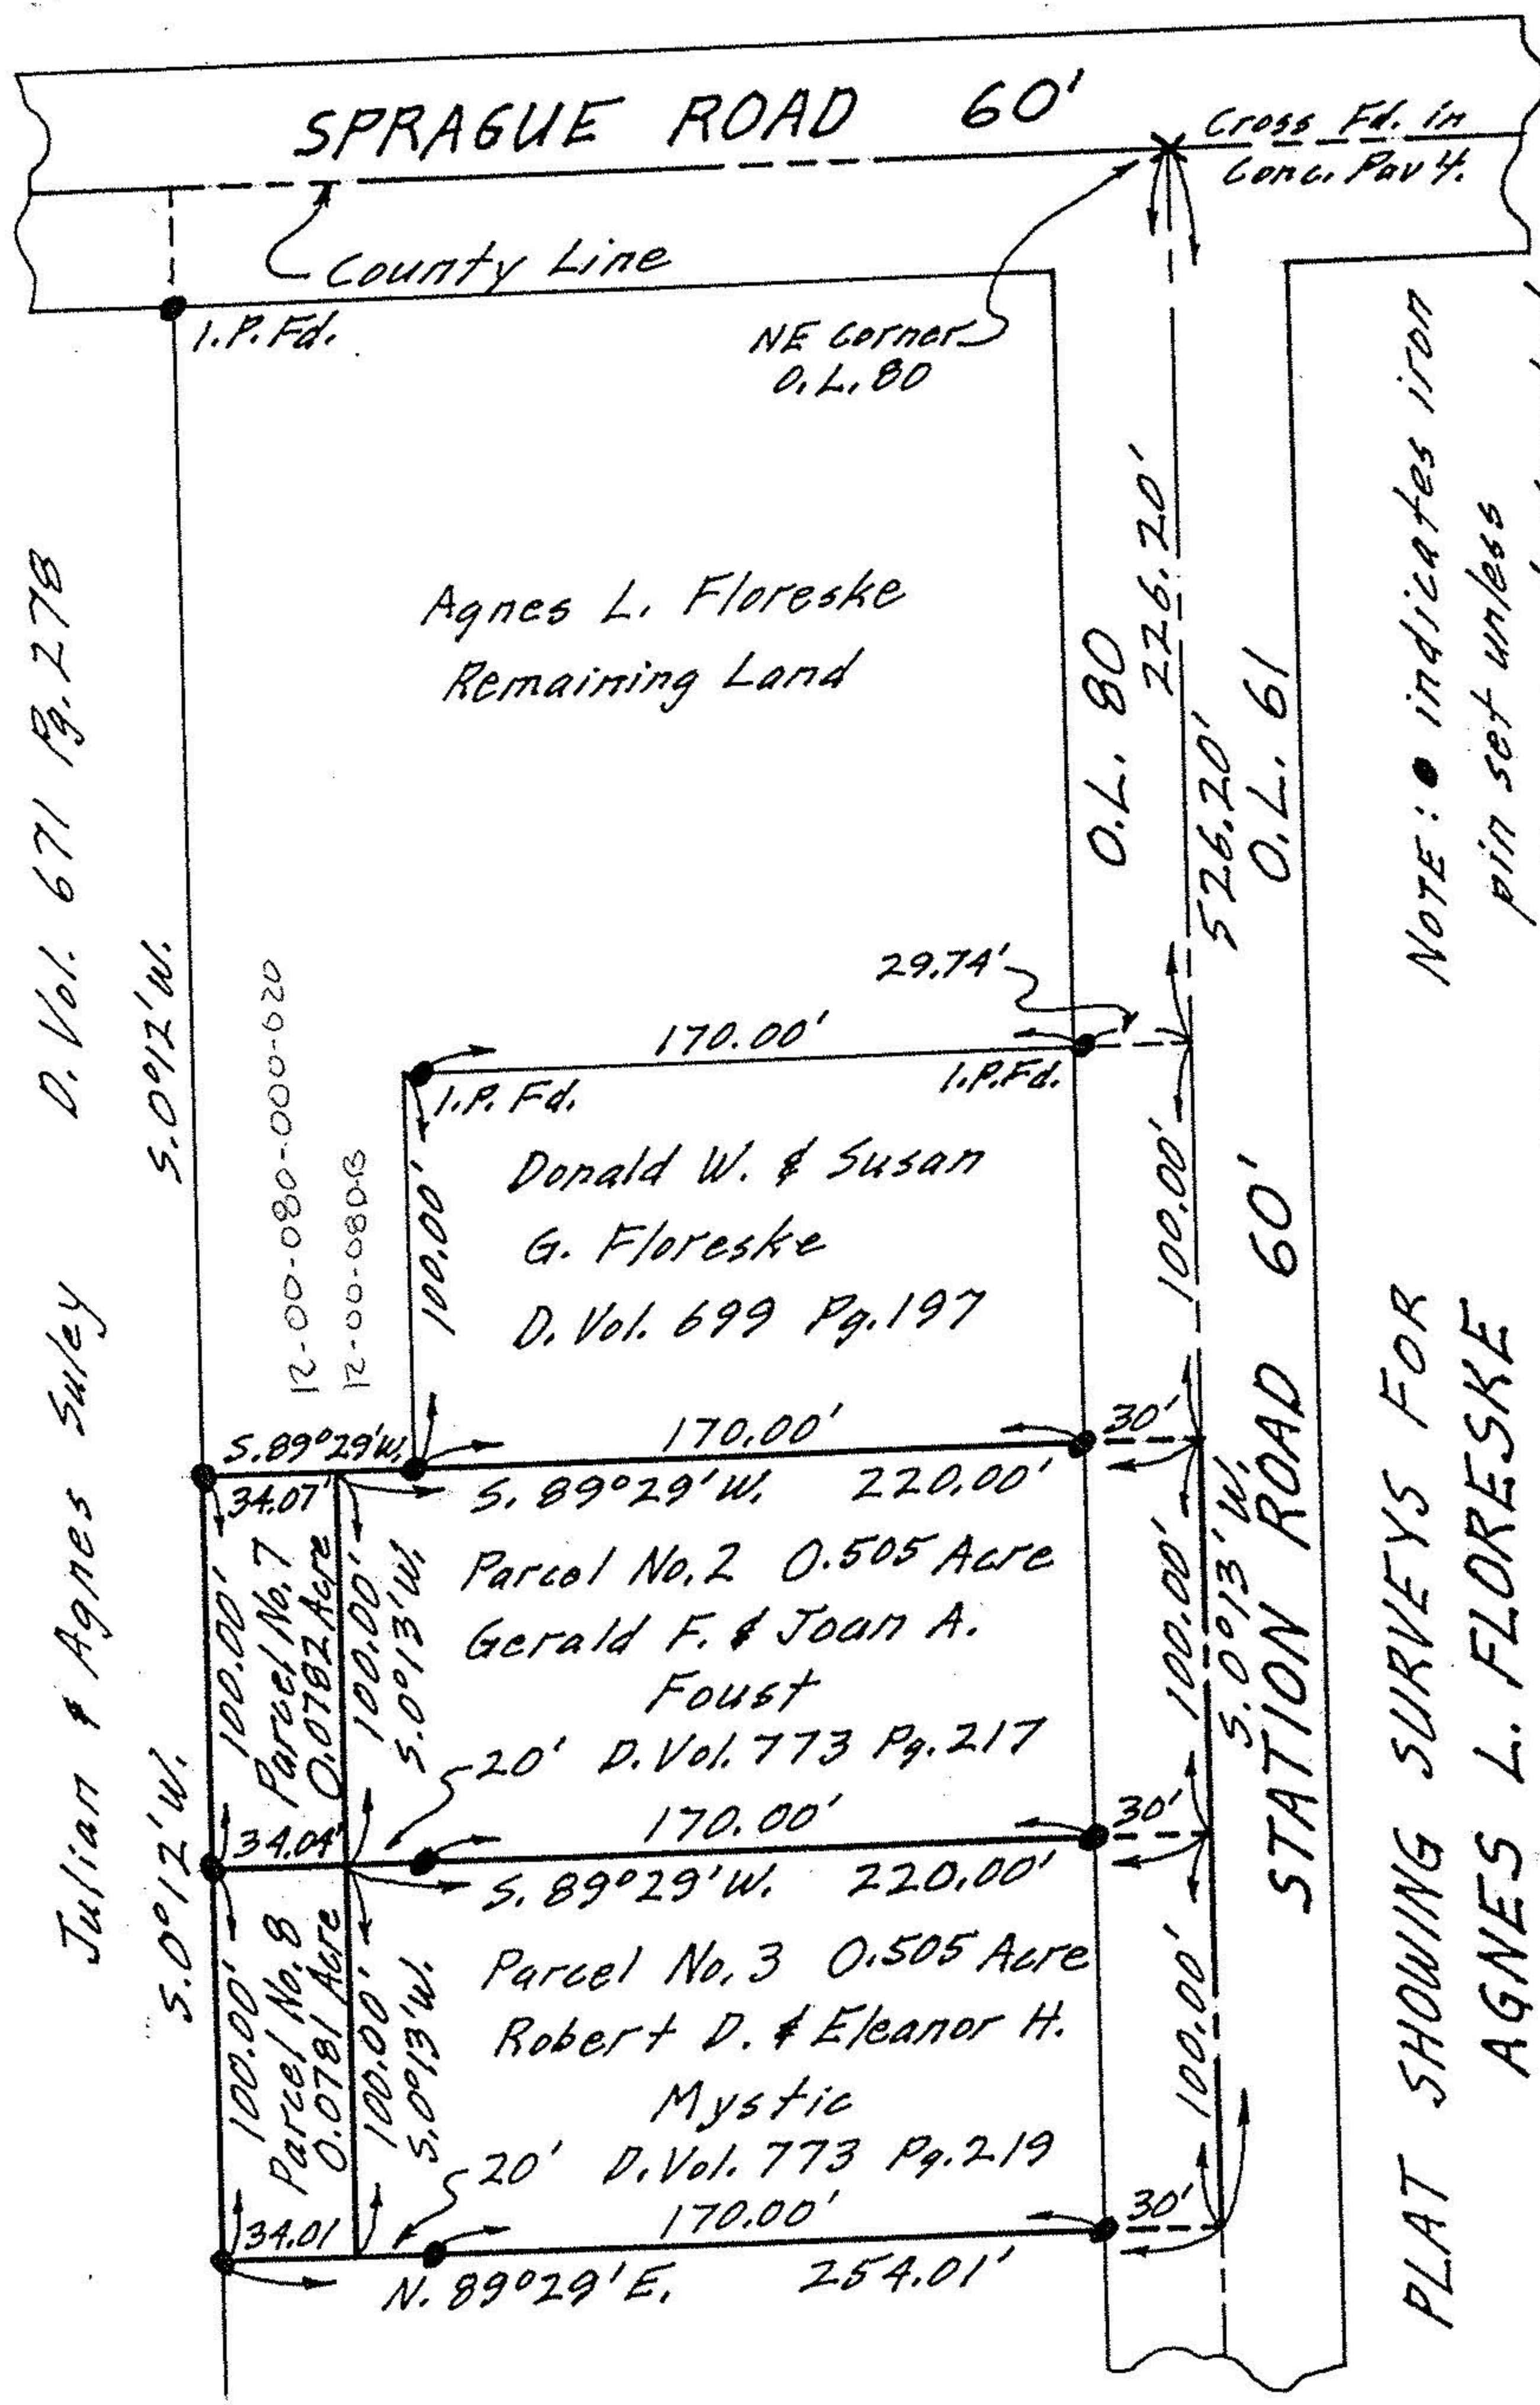 SPRAGUE ROAD 60'
Cross Fd. in
Conc. Pav't.
County Line
I.P. Fd.
NE Corner
O.L. 80
Agnes L. Floreske
Remaining Land
O.L. 80
226.20'
526.20'
O.L. 61
NOTE: ● indicates iron
pin set unless
D. Vol. 671 Pg. 278
S. 0°12' W.
12-00-080-000-020
12-00-080-B
29.74'
170.00'
I.P. Fd.
I.P. Fd.
100.00'
Donald W. & Susan
G. Floreske
D. Vol. 699 Pg. 197
100.00'
STATION ROAD 60'
Julian & Agnes Suley
S. 89°29' W.
170.00'
30'
34.07'
S. 89°29' W. 220.00'
100.00'
Parcel No. 7
0.0782 Acre
100.00'
S. 0°13' W.
Parcel No. 2 0.505 Acre
Gerald F. & Joan A.
Foust
20' D. Vol. 773 Pg. 217
100.00'
S. 0°13' W.
S. 0°12' W.
170.00'
30'
34.04'
S. 89°29' W. 220.00'
100.00'
Parcel No. 8
0.0781 Acre
100.00'
S. 0°13' W.
Parcel No. 3 0.505 Acre
Robert D. & Eleanor H.
Mystic
20' D. Vol. 773 Pg. 219
100.00'
34.01
170.00'
30'
N. 89°29' E. 254.01'
PLAT SHOWING SURVEYS FOR
AGNES L. FLORESKE